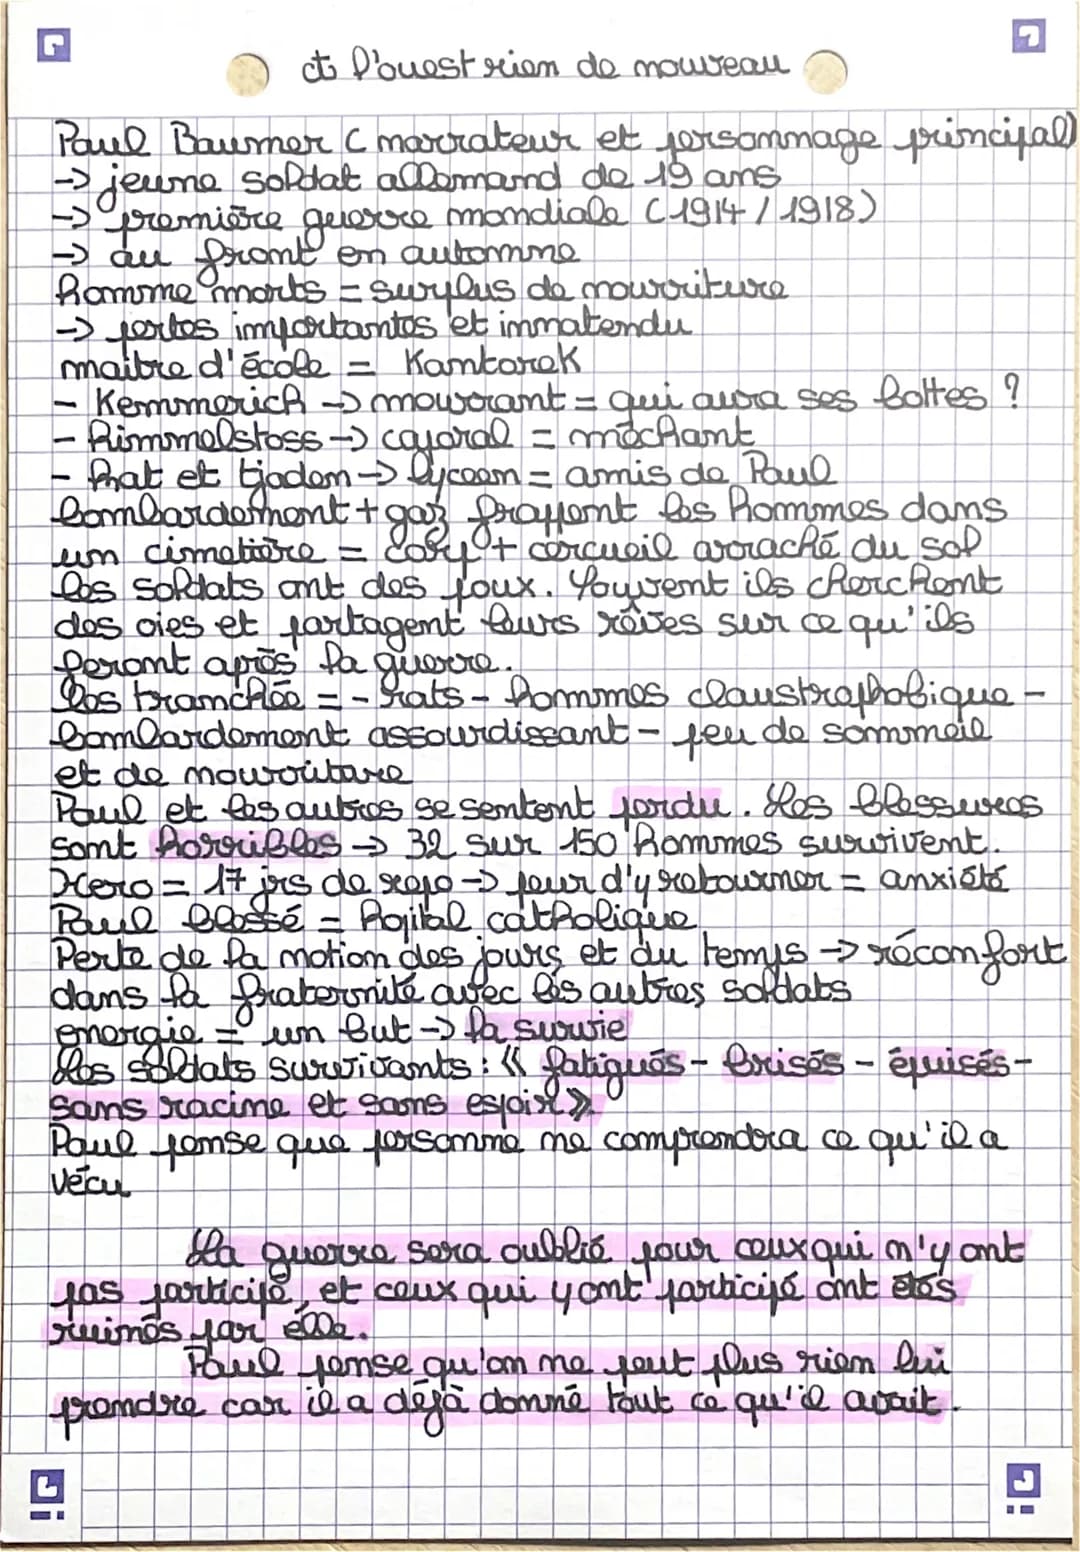 à l'ouest rien de nouveau
Paul Baumer (narrateur et personnage principal)
-> jeune soldat allemand de 19 ans
-> première guerre mondiale (1914/1918)
-> au front en automne
homme morts = surplus de nourriture
-> pertes importantes et innatendu
maitre d'école = Kantorek
- Kemmerich -> mourant = qui aura ses bottes ?
- himmelstoss -> caporal = méchant
- hat et tjaden -> lyceen = amis de Paul
bombardement + gaz frappent les hommes dans
un cimetière = corp + cercueil arraché du sol
les soldats ont des poux. Souvent ils cherchent
des oies et partagent leurs rêves sur ce qu'ils
feront après la guerre.
les tranchée = - rats - hommes claustrophobique -
bombardement assourdissant - peu de sommeil
et de nourriture
Paul et les autres se sentent perdu. Les blessures
sont horribles -> 32 sur 150 hommes survivent.
Hero = 17 jrs de repo -> peur d'y retourner = anxiété
Paul blessé = hopital catholique
Perte de la notion des jours et du temps -> réconfort
dans la fraternité avec les autres soldats
energie = un but -> la survie
Les soldats survivants : « fatigués - brisés - épuisés -
sans racine et sans espoir »
Paul pense que personne ne comprendra ce qu'il a
vécu
La guerre sera oublié pour ceux qui n'y ont
pas participé, et ceux qui y ont participé ont étés
ruinés par elle.
Paul pense qu'on ne peut plus rien lui
prendre car il a déjà donné tout ce qu'il avait.